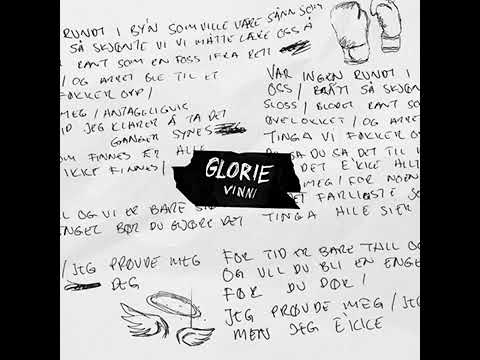 RUNDT I BY'N SOM VILLE VARE SÅNN SOM
SÅ SKJØNTE VI VI MÅTTE LÆRE OSS Å
RANT SOM EN FOSS IFRA RETT
/ OG ARRET BLE TIL ET
FØKKER OPP/
MEG / ANTAGELIGVIS
TID JEG KLARER Å TA DET
GANGER SYNES
SOM FINNES ER ALLE
IKKE FINNES/
VAR INGEN RUNDT I
OSS / BRÅTT SÅ SKJØNTE
SLOSS / BLODET RANT SOM
ØYELOKKET / OG ARRET
TINGA VI FØKKER OPP
DA DU SA DET TIL
DET E'KKE ALLT
MEG / FOR NOEN
DET FARLIGSTE SOM
TINGA HILE SIER
GLORIE
VINNI
OG VI ER BARE
ENGEL BØR DU GJØRE DET
/ JEG PRØVDE MEG
JEG
FOR TID ER BARE TULL OG
OG VLL DU BLI EN ENGEL
FØR DU DØR/
JEG PRØVDE MEG / JEG
MEN JEG E'KKE